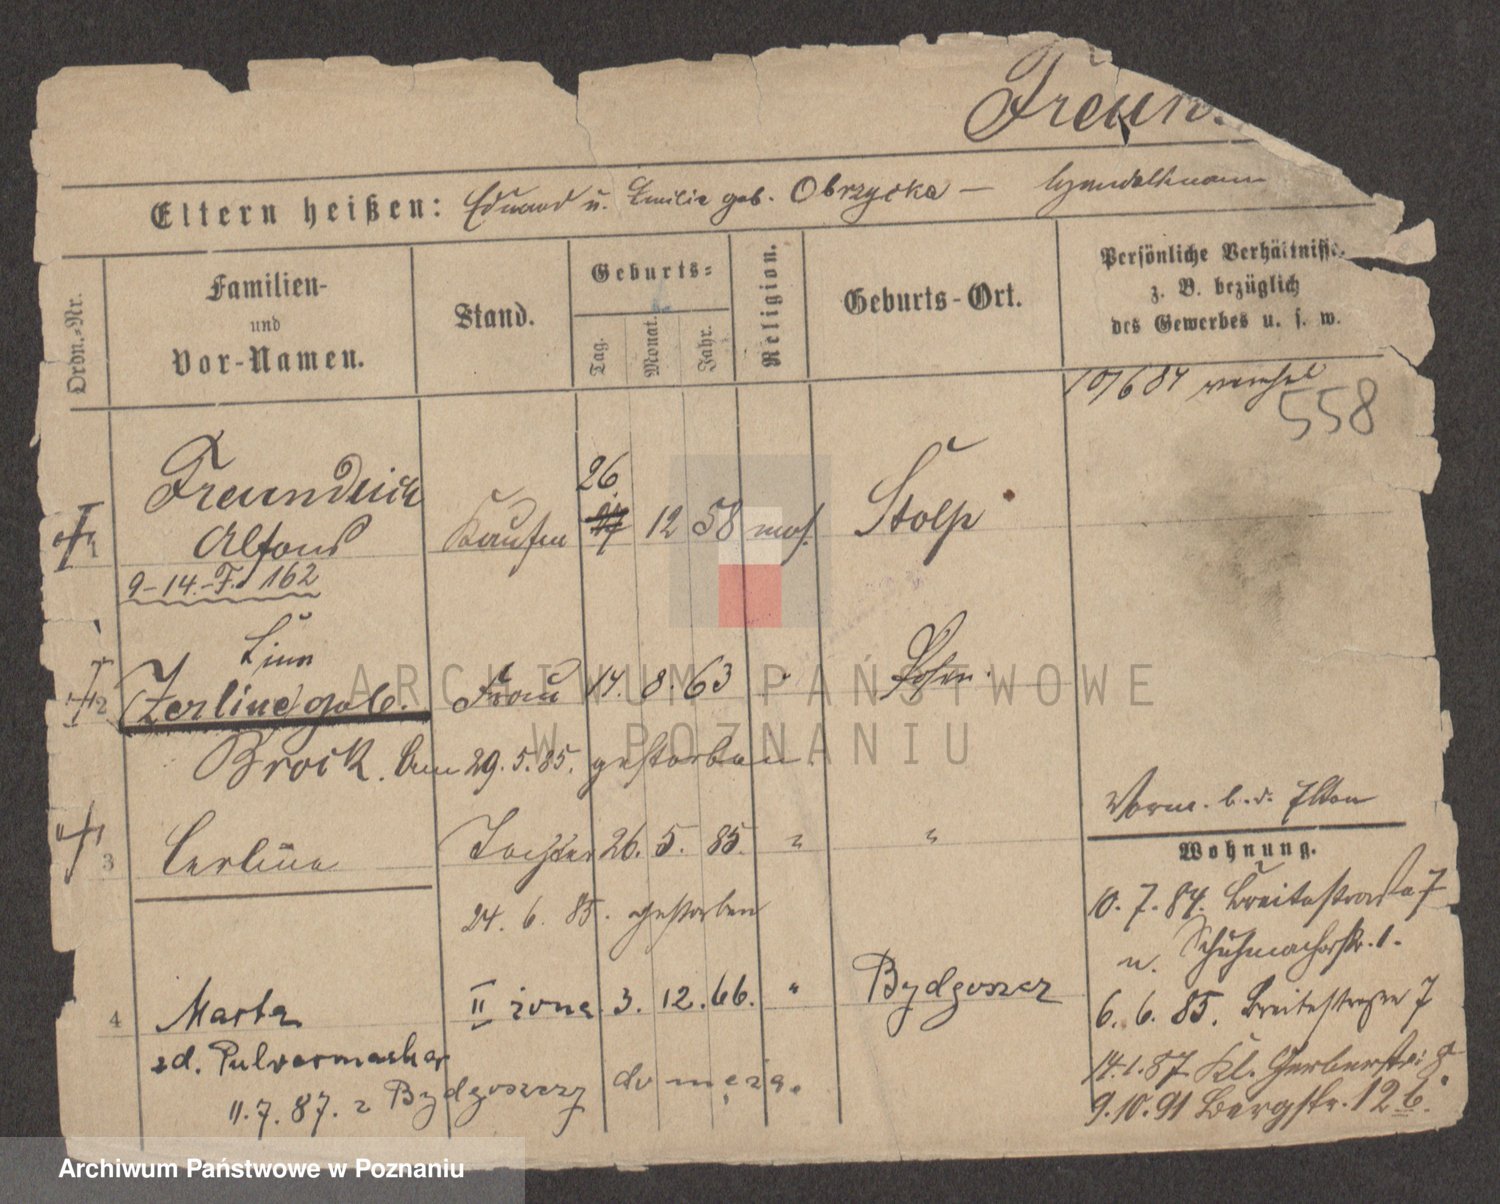 Freun
Eltern heißen: Eduard u. Emilie geb. Obrzycka — Handelsmann
Ordn.-Nr.
Familien-
und
Vor-Namen.
Stand.
Geburts-
Tag.
Monat.
Jahr.
Religion.
Geburts-Ort.
Persönliche Verhältnisse
z. B. bezüglich
des Gewerbes u. s. w.
10/6 84
558
26
1 Freundlich Kaufm 12 58 mos. Stolp
Alfons
9-14.-F. 162
Linn
2 (Zerline) geb. Frau 14. 8. 63 " Posen.
Brock. Am 29.5.85. gestorben
Vorm. b. d. Eltern
3 Cerline Tochter 26. 5. 85. " "
24. 6. 85. gestorben
Wohnung.
10. 7. 84. Breitestraße 7
u. Schuhmacherstr. 1.
4 Marta II żona 3. 12. 66. " Bydgoszcz
zd. Pulvermacher
11.7.87. z Bydgoszczy do męża.
6. 6. 85. Breitestraße 7
14.1.87 Kl. Gerberstr. 8
9.10.91 Bergstr. 12 b.
ARCHIWUM PAŃSTWOWE
W POZNANIU
Archiwum Państwowe w Poznaniu